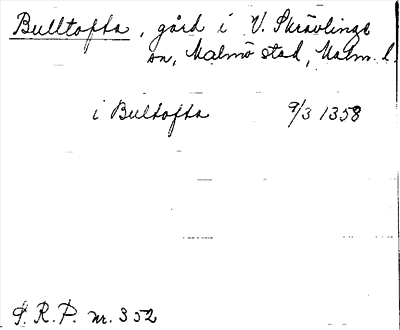 Bulltofta, gård i V. Skrävlinge
sn, Malmö stad, Malm. l.
i Bultofta 9/3 1358
S. R. P. nr. 352